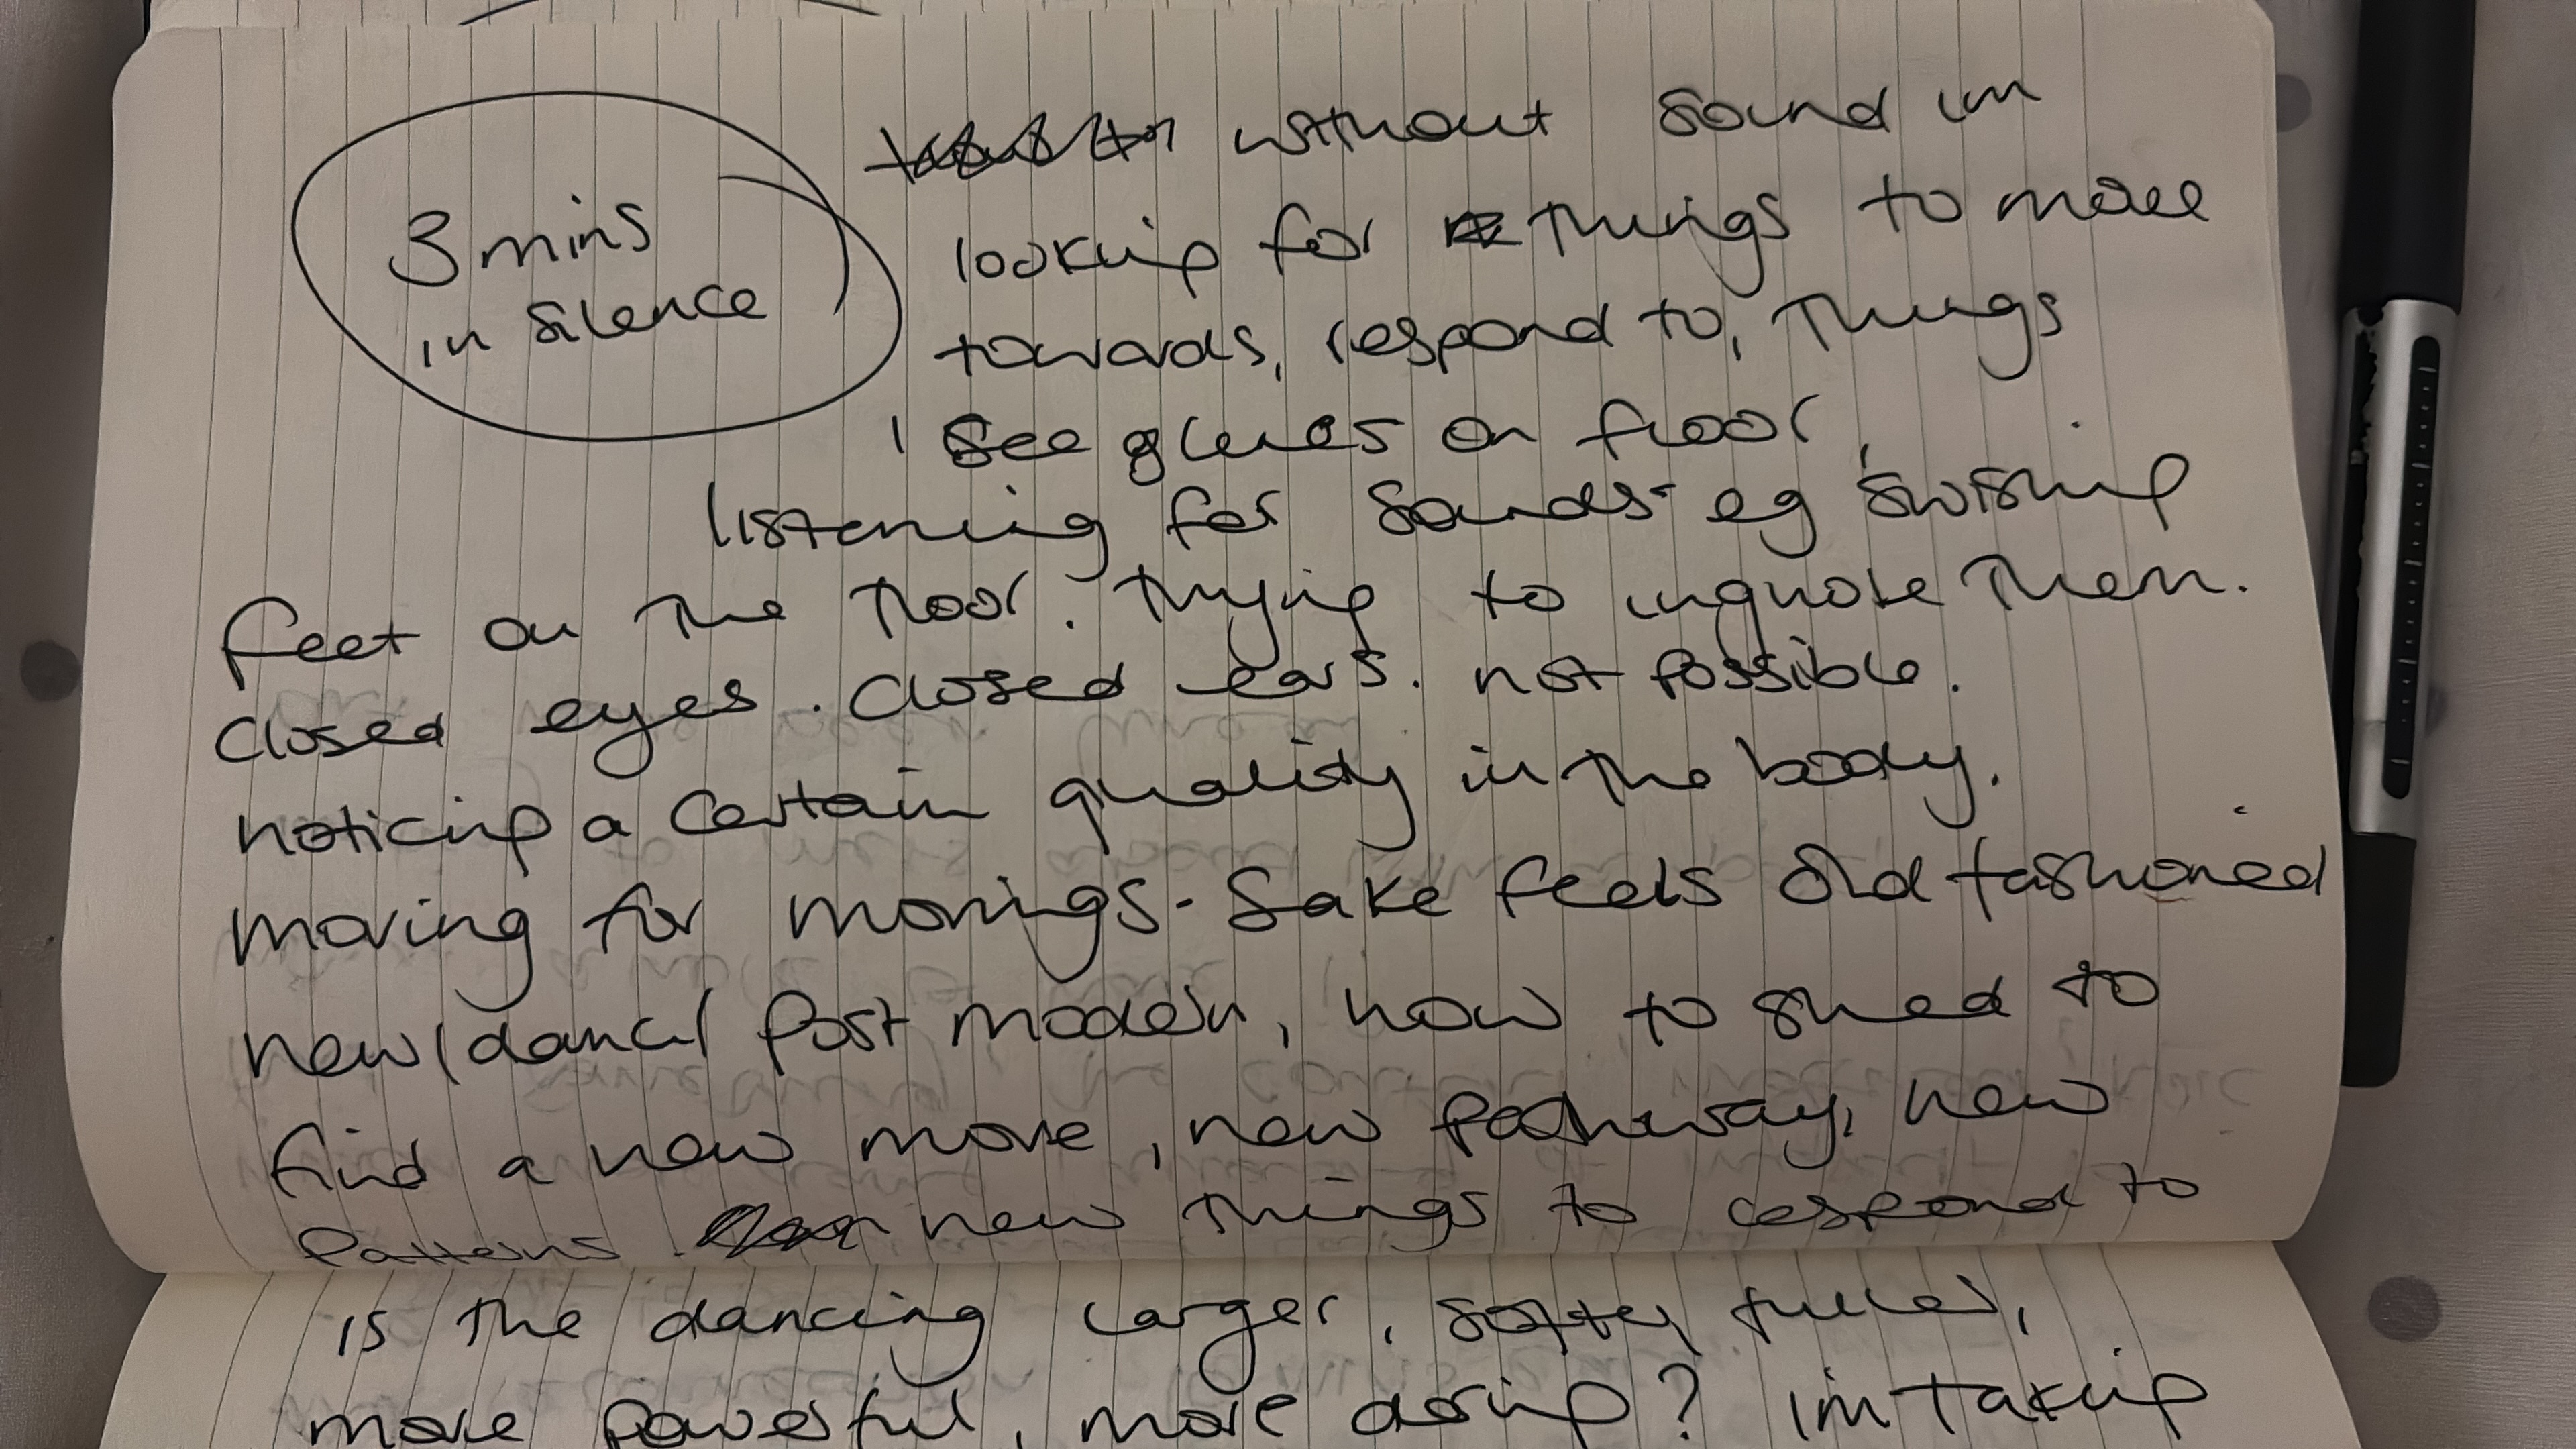 3 mins
in silence
without sound im
looking for things to move
towards, respond to, things
I see on floor,
listening for sounds - eg swishing
feet on the floor. trying to ingnore them.
closed eyes. closed ears. not possible.
noticing a certain quality in the body.
moving for movings - sake feels old fashioned
new/dance/ post modern, how to shed to
find a new move, new pathway, new
patterns. new things to respond to
is the dancing larger, softer, fuller,
more powerful, more daring? im taking